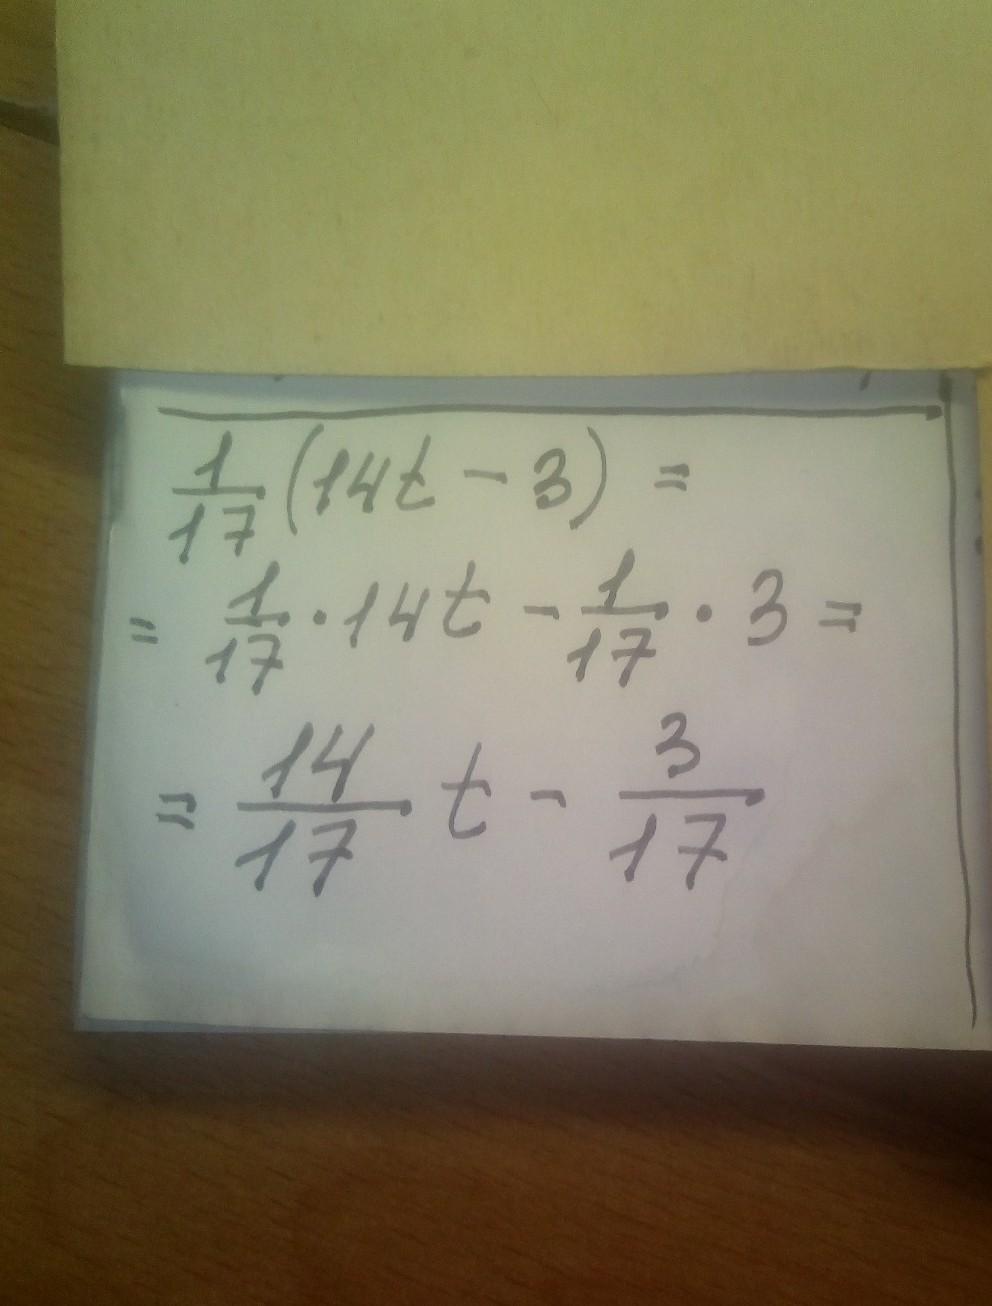 1/17 (14t - 3) =
= 1/17 · 14t - 1/17 · 3 =
= 14/17 t - 3/17